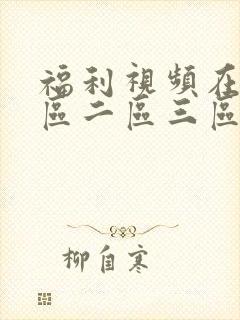 福利視頻在
區二區三區
柳自寒